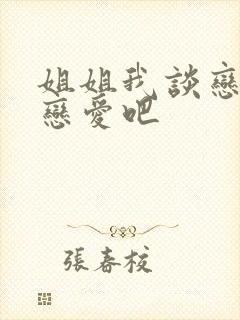 姐姐我談戀
戀愛吧
張春校